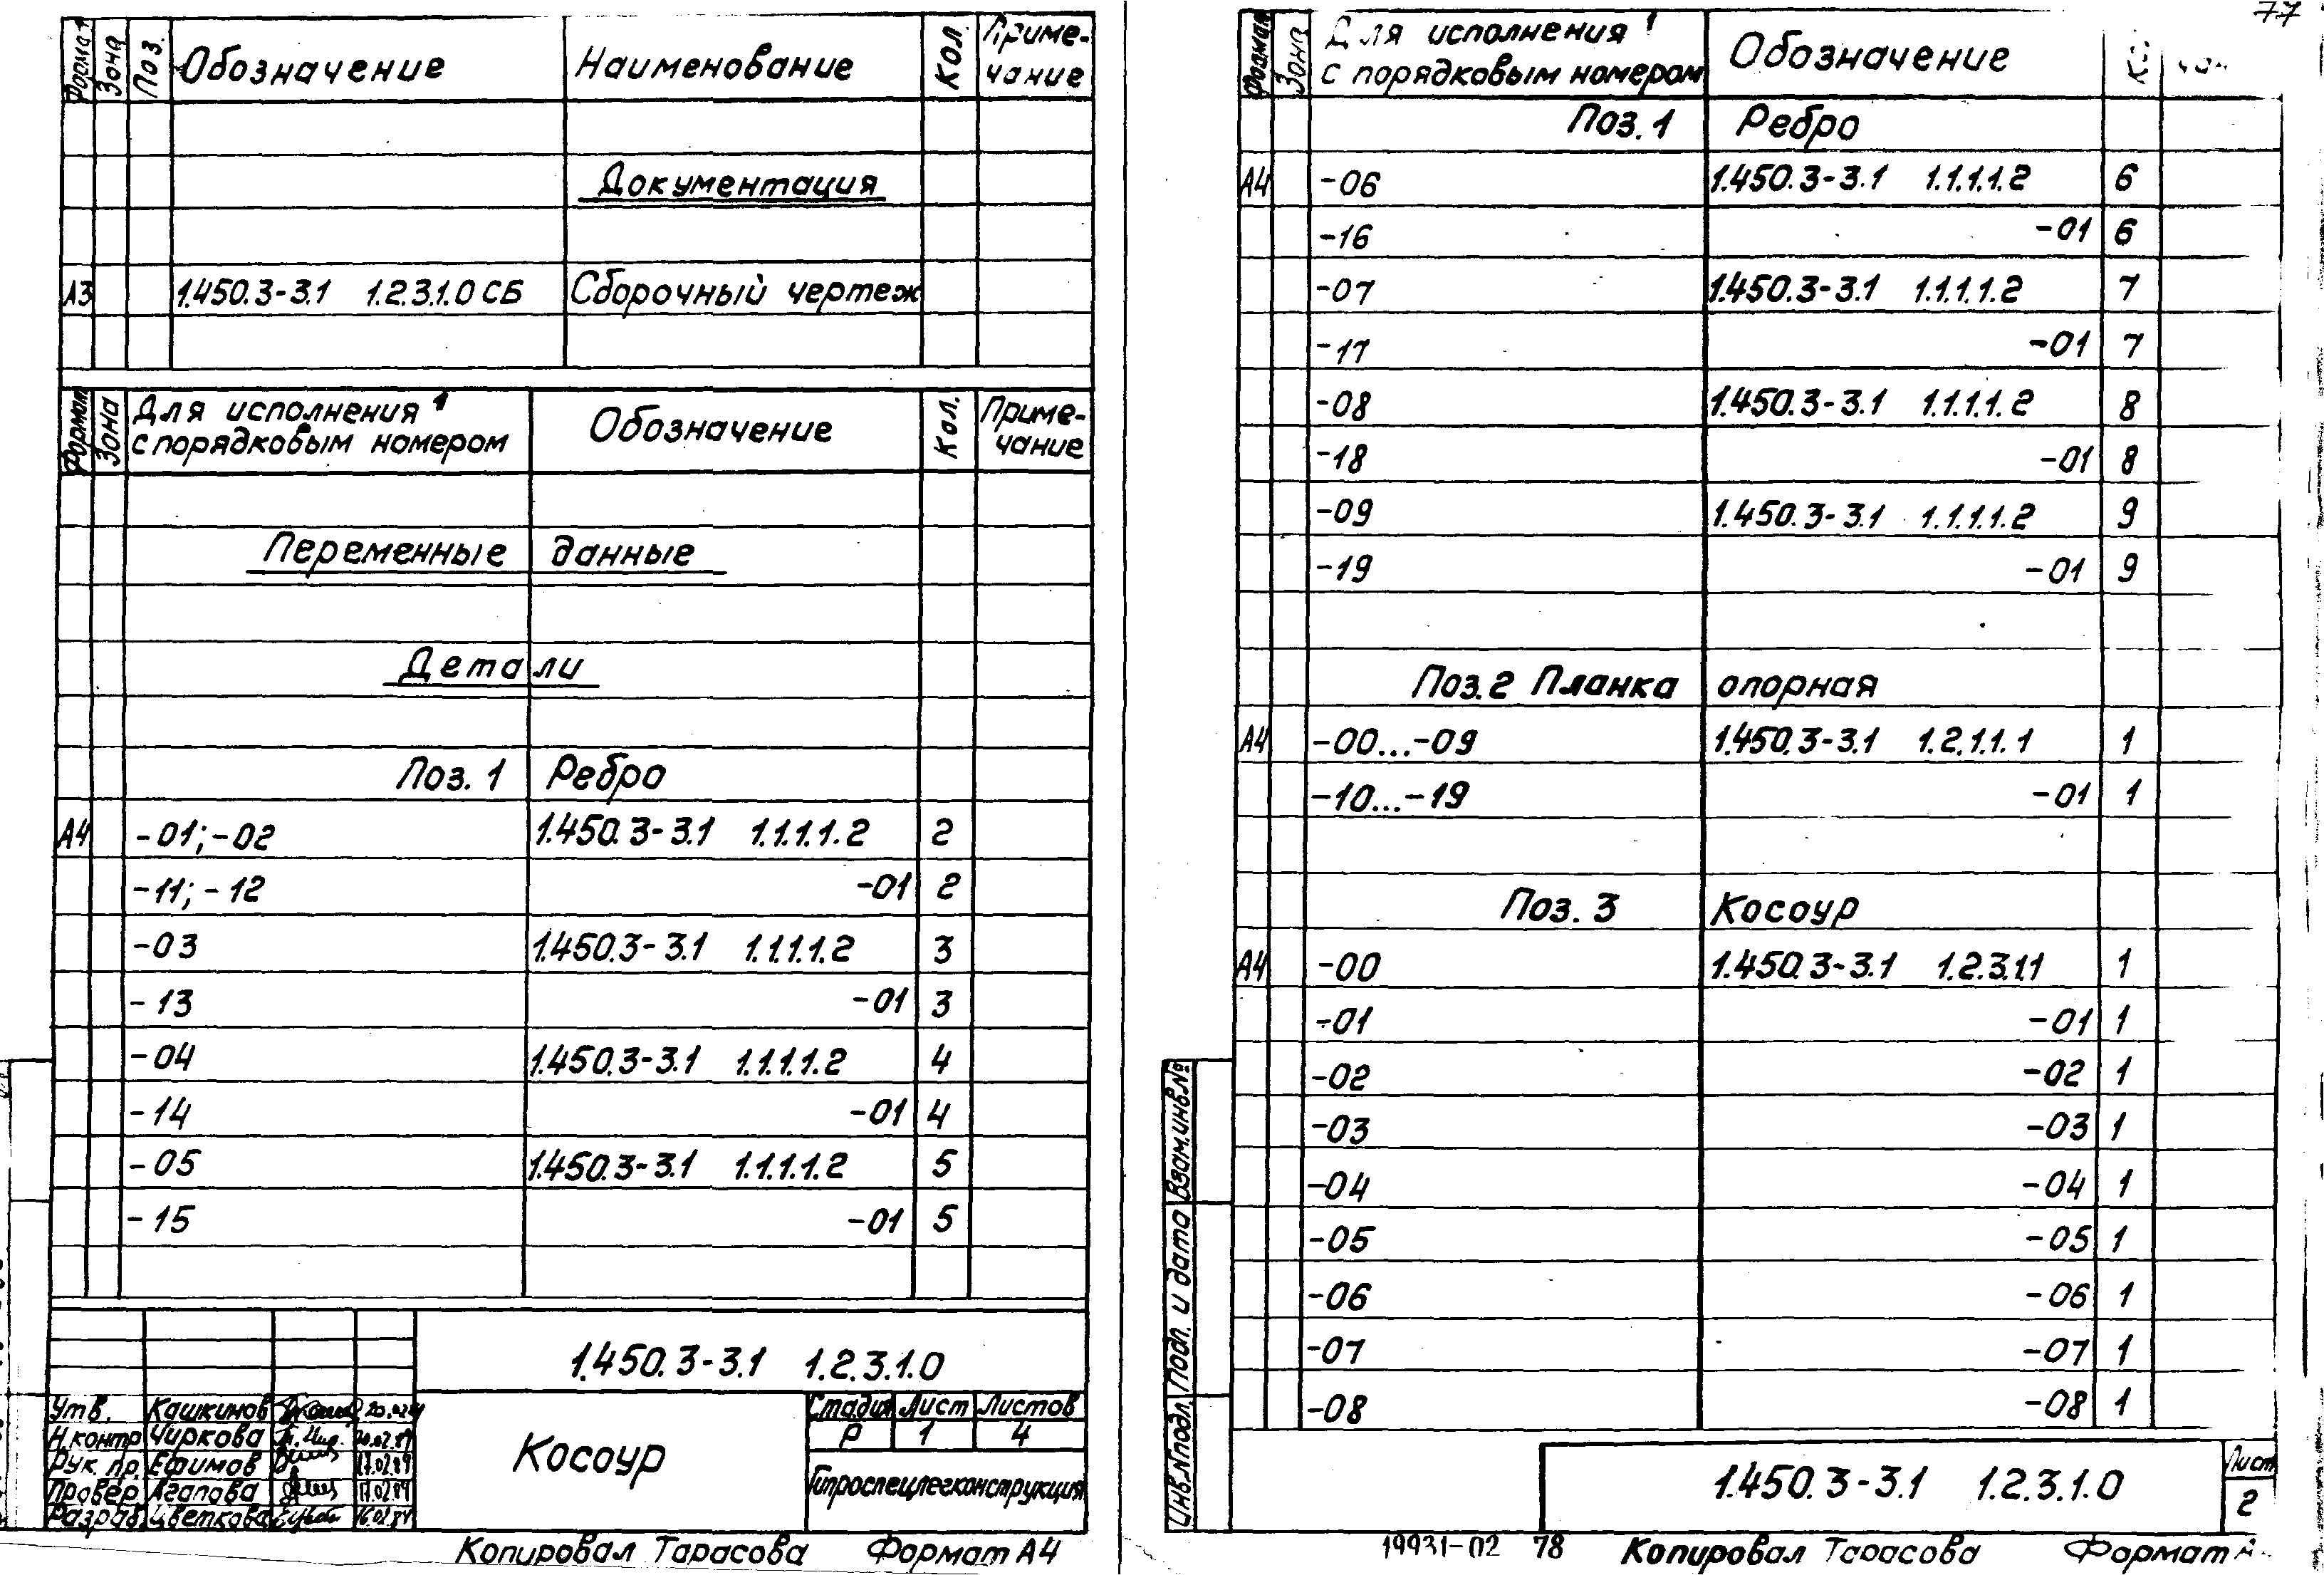 Формат Зона Поз. Обозначение Наименование Кол. Приме-
чание
Документация
А3 1.450.3-3.1 1.2.3.1.0 СБ Сборочный чертеж
Формат Зона Для исполнения 1 Обозначение Кол. Приме-
с порядковым номером чание
Переменные данные
Детали
Поз. 1 Ребро
А4 -01; -02 1.450.3-3.1 1.1.1.1.2 2
-11; -12 -01 2
-03 1.450.3-3.1 1.1.1.1.2 3
-13 -01 3
-04 1.450.3-3.1 1.1.1.1.2 4
-14 -01 4
-05 1.450.3-3.1 1.1.1.1.2 5
-15 -01 5
1.450.3-3.1 1.2.3.1.0
Утв. Кашкинов
Н.контр Чиркова
Рук. пр. Ефимов 17.02.89
Провер. Агапова 17.02.89
Разраб. Цветкова
Косоур
Стадия Лист Листов
Р 1 4
Гипроспецлегконструкция
Копировал Тарасова Формат А4
77
Формат Зона Для исполнения 1 Обозначение
с порядковым номером
Поз. 1 Ребро
А4 -06 1.450.3-3.1 1.1.1.1.2 6
-16 -01 6
-07 1.450.3-3.1 1.1.1.1.2 7
-17 -01 7
-08 1.450.3-3.1 1.1.1.1.2 8
-18 -01 8
-09 1.450.3-3.1 1.1.1.1.2 9
-19 -01 9
Поз. 2 Планка опорная
А4 -00...-09 1.450.3-3.1 1.2.1.1.1 1
-10...-19 -01 1
Поз. 3 Косоур
А4 -00 1.450.3-3.1 1.2.3.1.1 1
-01 -01 1
-02 -02 1
-03 -03 1
-04 -04 1
-05 -05 1
-06 -06 1
-07 -07 1
-08 -08 1
Инв.№подл. Подп. и дата Взам.инв.№
1.450.3-3.1 1.2.3.1.0
Лист
2
19931-02 78 Копировал Тарасова Формат